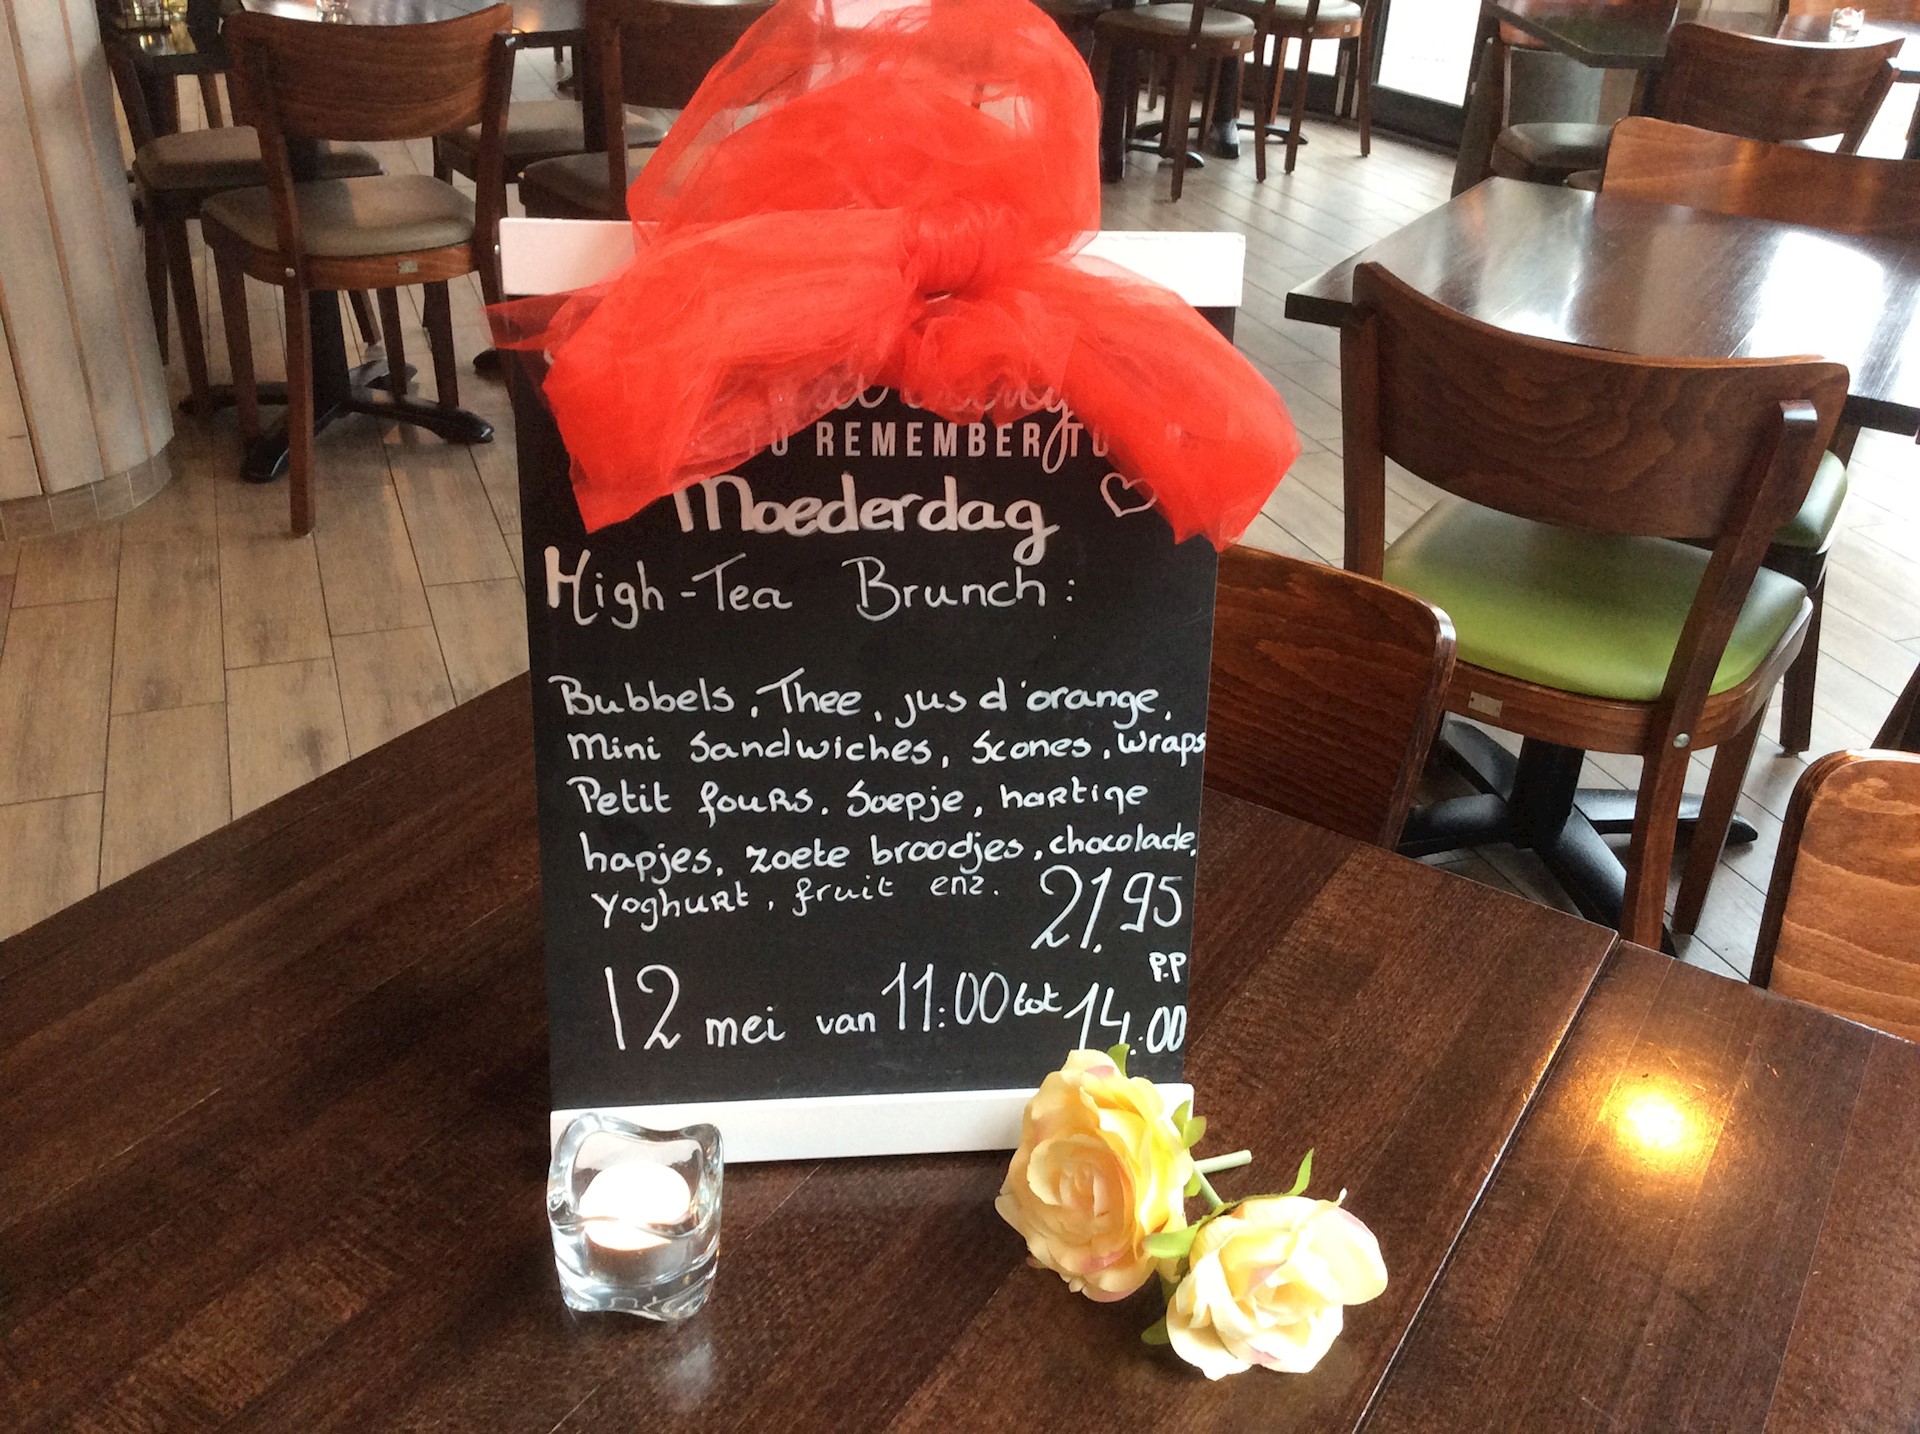 TO REMEMBER TO
Moederdag
High-Tea Brunch:
Bubbels, Thee, jus d'orange,
Mini Sandwiches, Scones, Wraps
Petit fours, Soepje, hartige
hapjes, zoete broodjes, chocolade,
Yoghurt, fruit enz.
21,95
P.P
12 mei van 11:00 tot 14:00